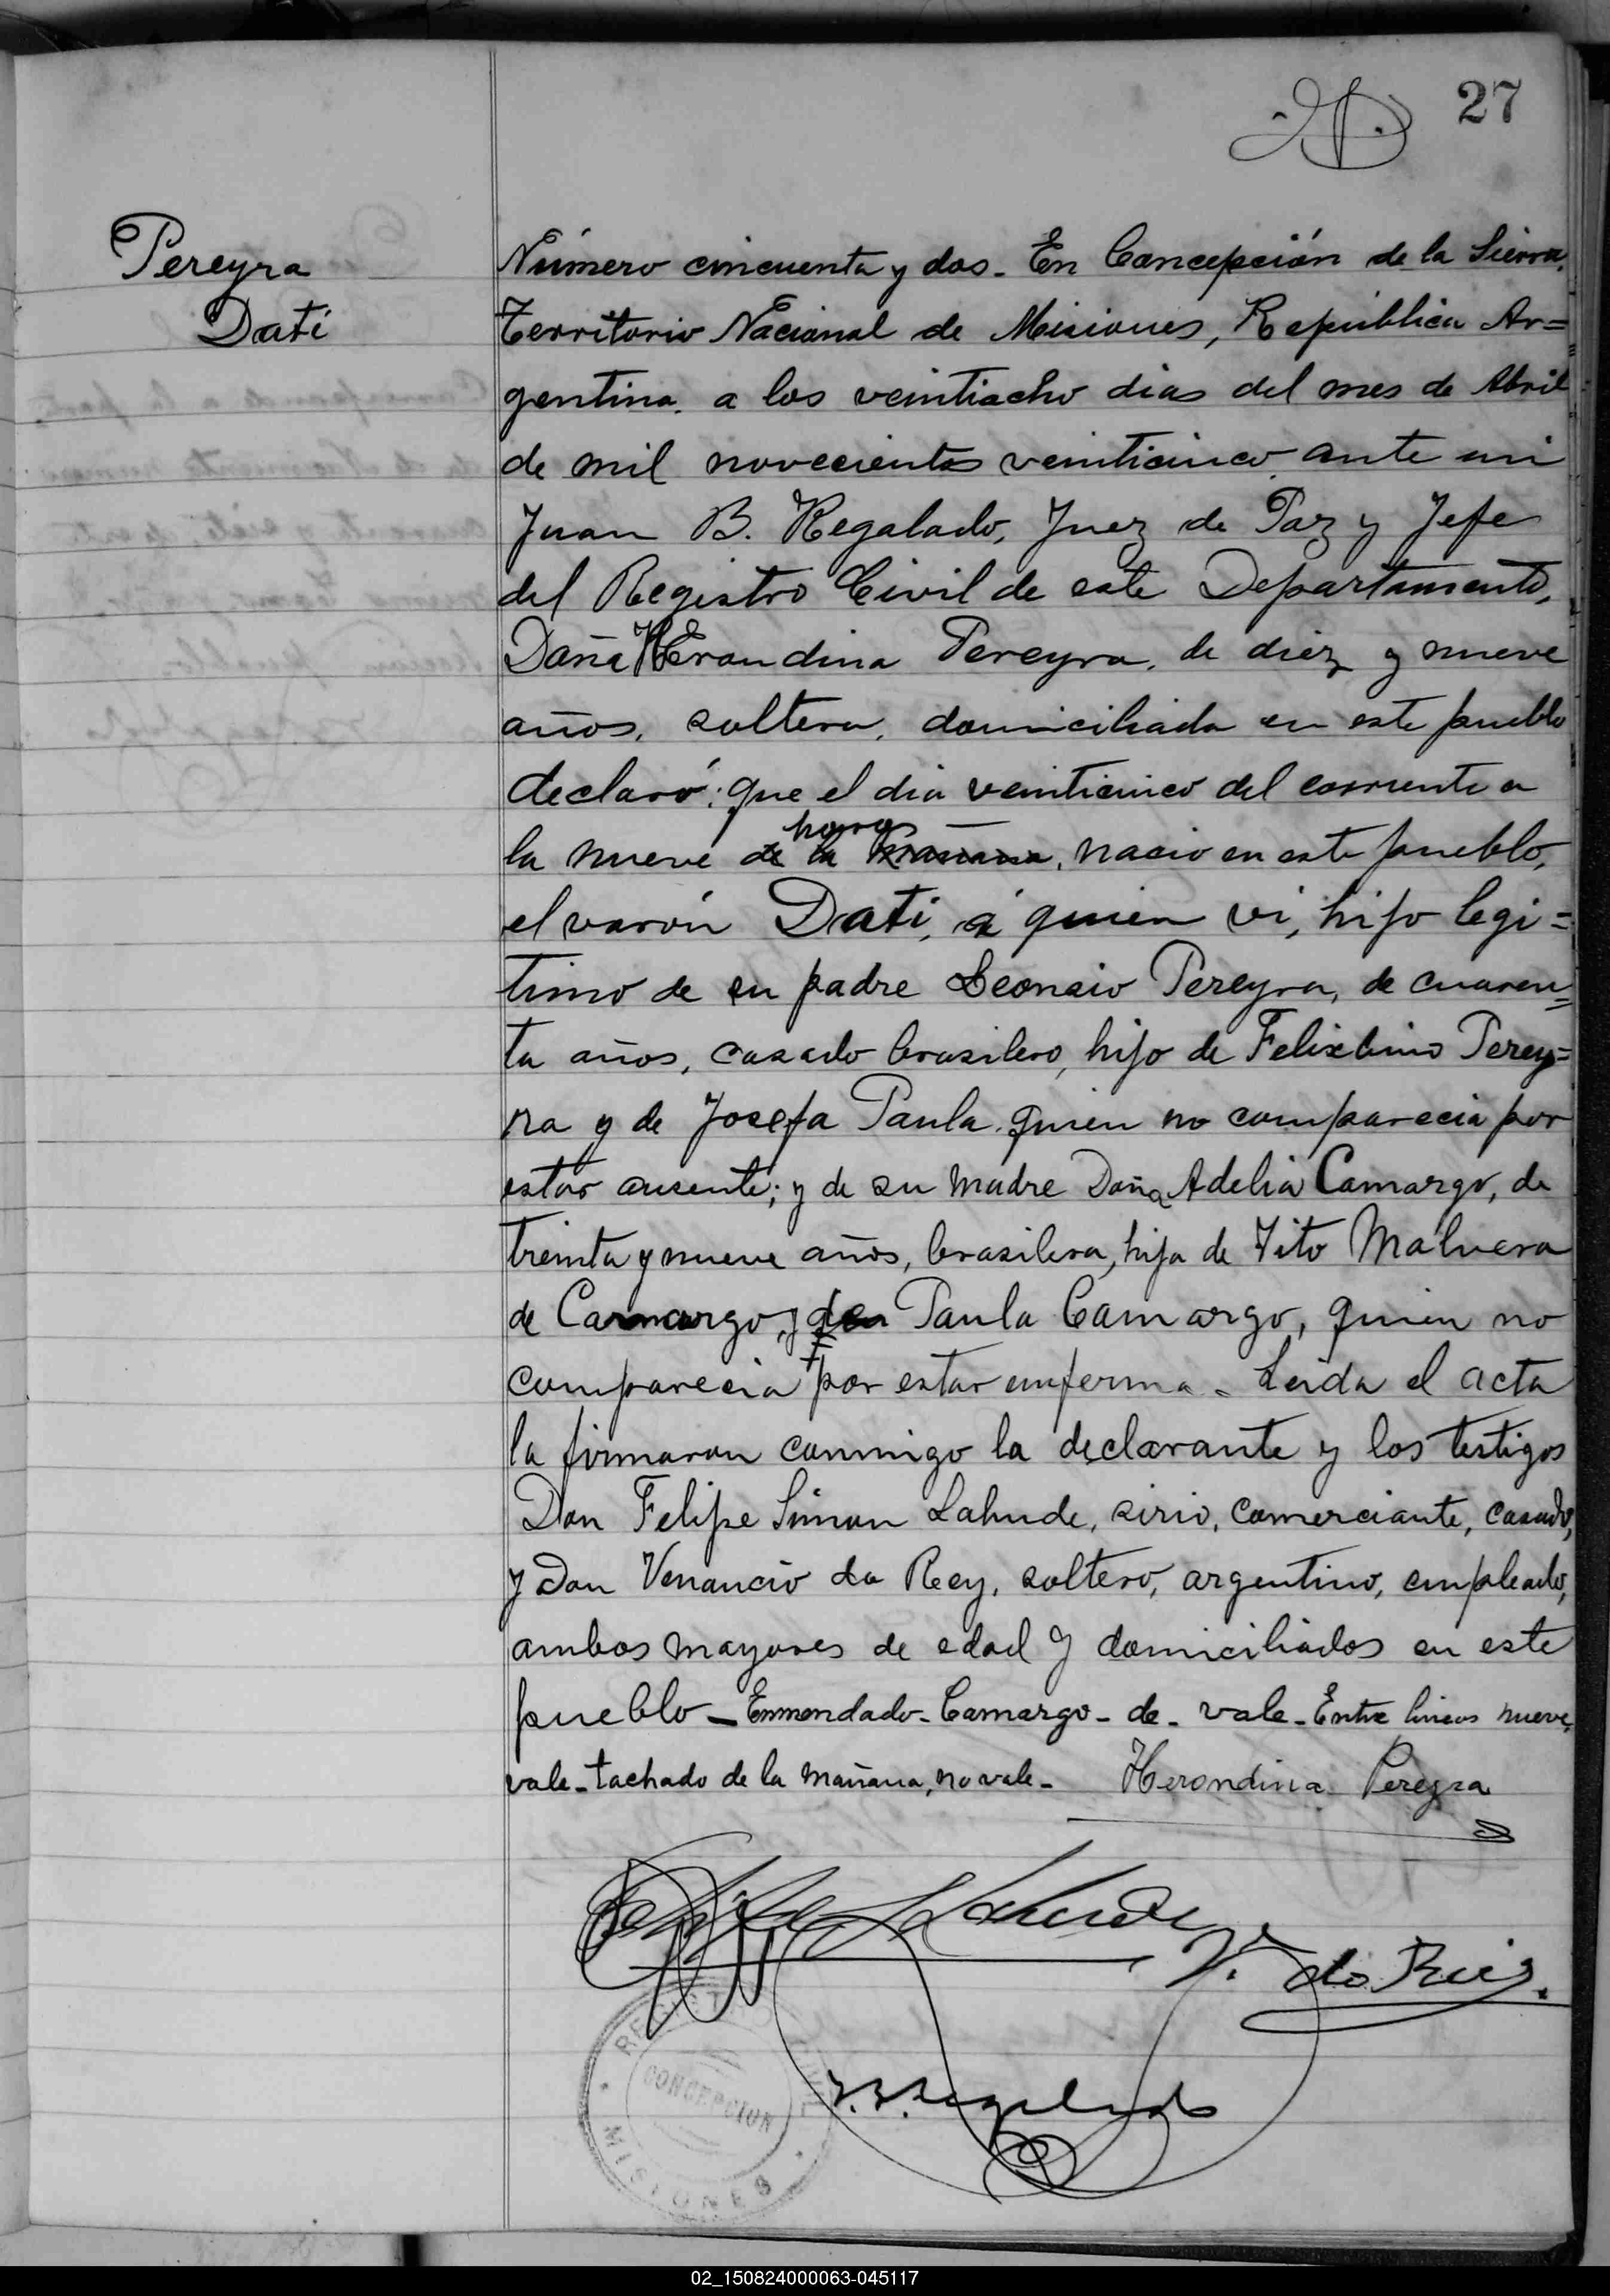 27
Pereyra
Dati
Número cincuenta y dos - En Concepción de la Sierra,
Territorio Nacional de Misiones, República Ar=
gentina, a los veintiocho dias del mes de Abril
de mil novecientos veinticinco, ante mi
Juan B. Regalado, Juez de Paz y Jefe
del Registro Civil de este Departamento,
Doña Herondina Pereyra, de diez y nueve
años, soltera, domiciliada en este pueblo
declaró: que el dia veinticinco del corriente a
horas
la nueve de la mañana, nacio en este pueblo,
el varón Dati, á quien vi, hijo legi=
timo de su padre Leoncio Pereyra, de cuaren=
ta años, casado brasilero, hijo de Felixbino Perey=
ra y de Josefa Paula, quien no comparecia por
estar ausente; y de su madre Doña Adelia Camargo, de
treinta y nueve años, brasilera, hija de Tito
de Camargo, y de Paula Camargo, quien no
comparecia por estar emferma - Leida el acta
la firmaron conmigo la declarante y los testigos
Don Felipe Simon Lahude, sirio, comerciante, casado,
y Don Venancio do Rey, soltero, argentino, empleado,
ambos mayores de edad y domiciliados en este
pueblo - Enmendado - Camargo - de - vale - Entre lineas nueve,
vale - tachado de la mañana, no vale - Herondina Pereyra
Felipe S Lahude
V. do Reis.
J. B. Regalado
REGISTRO CIVIL
CONCEPCION
MISIONES
02_150824000063-045117